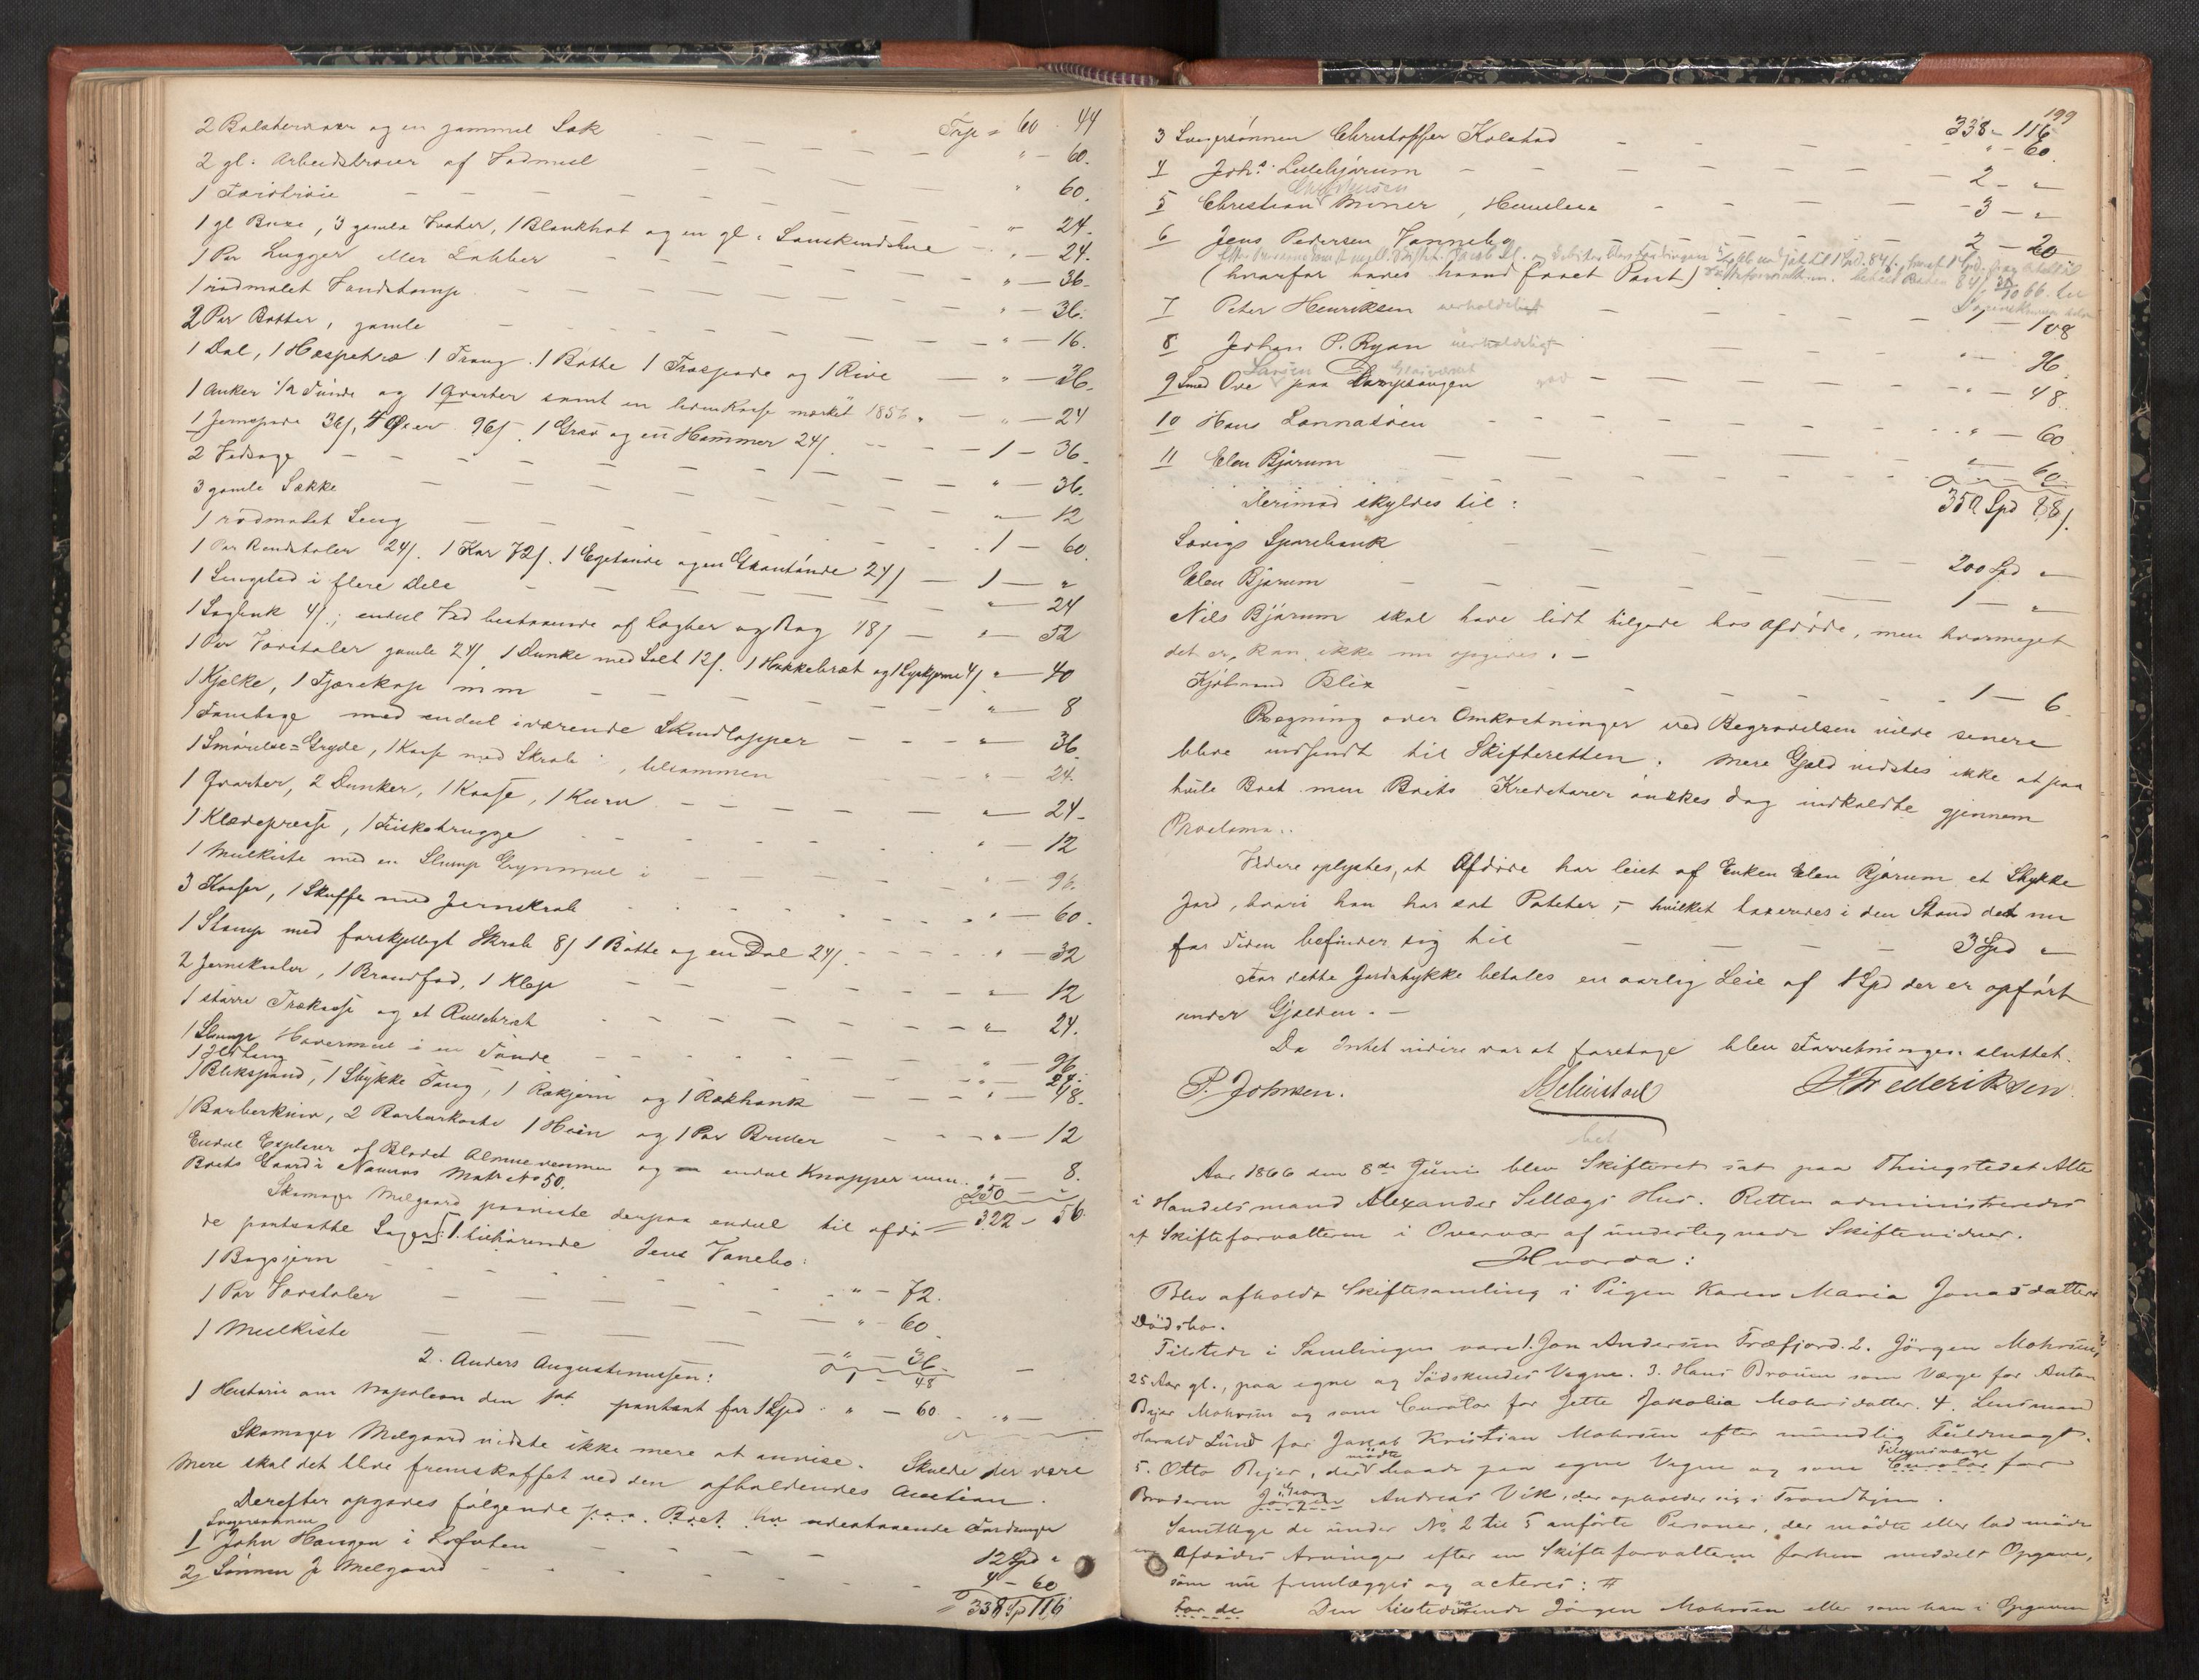 2 Bolstervaar og en gammel Sæk — Trsp = 60 - 44
2 gl. Arbeidstrøier af Vadmel — " — 60.
1 Trøie — " 60.
1 gl Buxe, 3 gamle Vester, 1 Blankhat og en gl. Sauskindslue — " — 24.
1 Par Lugger eller Labber — " — 24.
1 rødmalet Vandstamp — " — 36.
2 Par Bøtter, gamle — " — 36.
1 Dal, 1 Haspetræ 1 Traug 1 Bøtte 1 Træspade og 1 Rive — " — 16.
1 Anker 1/2 Tønde og 1 Qvarter samt en liden Kasse mærket 1856 — " — 36.
1 Jernspade 36/, 4 Øxer 96/, 1 Grev og en Hammer 24/. — " — 24
2 Vedsage — 1 — 36.
3 gamle Sække — " — 36.
1 rødmalet Seng — " — 12
1 Par Rendetøler 24/. 1 Kar 72/. 1 Egetønde og en Grantønde 24/ — 1 — 60.
1 Sengsted i flere Dele — 1 — "
1 Sagbænk 4/.; endel Ved bestaaende af Lægter og Rag 48/ — " — 24
1 Par Vævstoler gamle 24/. 1 Dunke med Salt 12/. 1 Hakkebræt og 1 Lyskjerne 4/ — " — 52
1 Kjelke, 1 Tjærekop m m — " — 40
1 med endel iværende Skindlapper — " — 8
1 Smørelse=Gryde, 1 Kasse med Skrab, tilsammen — " — 36
1 Qvarter, 2 Dunker, 1 Kasse, 1 Kurv — " — 24.
1 Klædepresse, 1 Fiskebrugge — " — 24.
1 Meelkiste med en Slump Grynmeel i — " — 12
3 Kasser, 1 Skuffe med Jernskrab — " — 96.
1 Stamp med forskjelligt Skrab 8/ 1 Bøtte og en Dal 24/. — " — 60.
2 Jernskaaler, 1 Brandfad, 1 Kløpp — " — 32
1 større Trækasse og et Rullebræt — " — 12
1 Slump Havremeel i en Tønde — " — 24.
1 Ildtang — " — 96
1 Blikspand, 1 Stykke Toug, 1 Rakjern og 1 Rakhank — " — 24. 48.
1 Barberkniv, 2 Barberkoste 1 Hein og 1 Par Briller — " — 12
Endel Explarer af Bladet Almuevennen og endel Knapper mm. — " — 8.
Boets Gaard i Namnos Matr No 50. 250 — "
= 322 — 56.
Skomager Melgaard paaviste derpaa endel til afdø-
de pantsatte Sager: 1. tilhørende Jens Vanebo:
1 Bagsjern — " — 72.
1 Par Vævstoler — " — 60.
1 Meelkiste — " — 36.
1 — 48
2. Anders Augustinussen:
1 Historie om Napoleon den 1st pantsat for 1 Spd. " — 60. — " —
Skomager Melgaard vidste ikke mere at anvise. Skulde der være
mere skal det blive fremskaffet ved den afholdendes Auction.
Derefter opgaves følgende paa Boet ha udestaaende Fordringer
Svigersønnen
1 John Haugen i Lofoten — 12 Spd "
2 Sønnen J. Melgaard — 4 — 60
= 338 Sp 116
199
338 — 116
3 Svigersønnen Christoffer Kolstad — " — 60.
4 Johs. Lillebjørum — 2 — "
Christensen
5 Christian Moner, Hunslein — 3 — "
6 Jens Pedersen Vannebo — 2 — 20
(hvorfor haves haand faaet Pant)
7 Peter Henriksen uerholdeligt — 1 — 108
8 Johan P. Ryan uerholdeligt — " — 96.
9 Smed Ove Larsen paa Dampsaugen — " — 48.
10 Hans Lannasøen — " — 60
11 Elen Bjørum — " — 60.
350 Spd 88/.
Derimod skyldes til:
Søvigs Sparebank — 200 Spd "
Elen Bjørum — 1 — "
Nils Bjørum skal have lidt tilgode hos Afdøde, men hvormeget
det er, kan ikke nu opgives. —
Kjøbmand Blix — 1 — 6.
Regning over Omkostninger ved Begravelsen vilde senere
blive indsendt til Skifteretten. Mere Gjæld vidstes ikke at paa
hvile Boet men Boets Kreditorer ønskes dog indkaldte gjennem
Proclama.
Videre oplystes, at Afdøde har leiet af Enken Elen Bjørum et Stykke
Jord, hvori han har sat Poteter, — hvilket taxeredes i den Stand det nu
for Tiden befinder sig til — 3 Spd "
For dette Jordstykke betales en aarlig Leie af 1 Spd der er opført
under Gjælden. —
Da Intet videre var at foretage blev Forretningen sluttet.
P. Johnsen. Melinstad J Frederiksen.
Aar 1866 den 8de Juni blev Skifteret sat paa Thingstedet Alte
i Handelsmand Alexander Sellægs Hus. Retten administreredes
af Skifteforvalteren i Overvær af undertegnede Skiftevidner.
Hvorda:
Blev afholdt Skiftesamling i Pigen Karen Maria Jonasdatters
Dødsbo.
Tilstede i Samlingen vare 1. Jon Andersen Træfjord. 2. Jørgen Mohrsen,
25 Aar gl., paa egne og Sødskendes Vegne. 3. Hans Brouen som Værge for Anton
Bejer Mohrsen og som Curator for Jette Jakobia Mohrsdatter. 4. Lensmand
Harald Lund for Jakob Kristian Mohrsen efter mundlig Fuldmagt.
5. Otto Bejer, der mødte baade paa egne Vegne og som Curator Tilsynsværge for
Broderen Jørgen Georg Andreas Vik, der opholder sig i Trondhjem.
Samtlige de under No 2 til 5 anførte Personer, der mødte eller lod møde
er Afdødes Arvinger efter en Skifteforvalteren forhen meddelt Opgave,
som nu fremlægges og acteres: #
For de Den tilstedeværende Jørgen Mohrsen eller som han i Opgaven